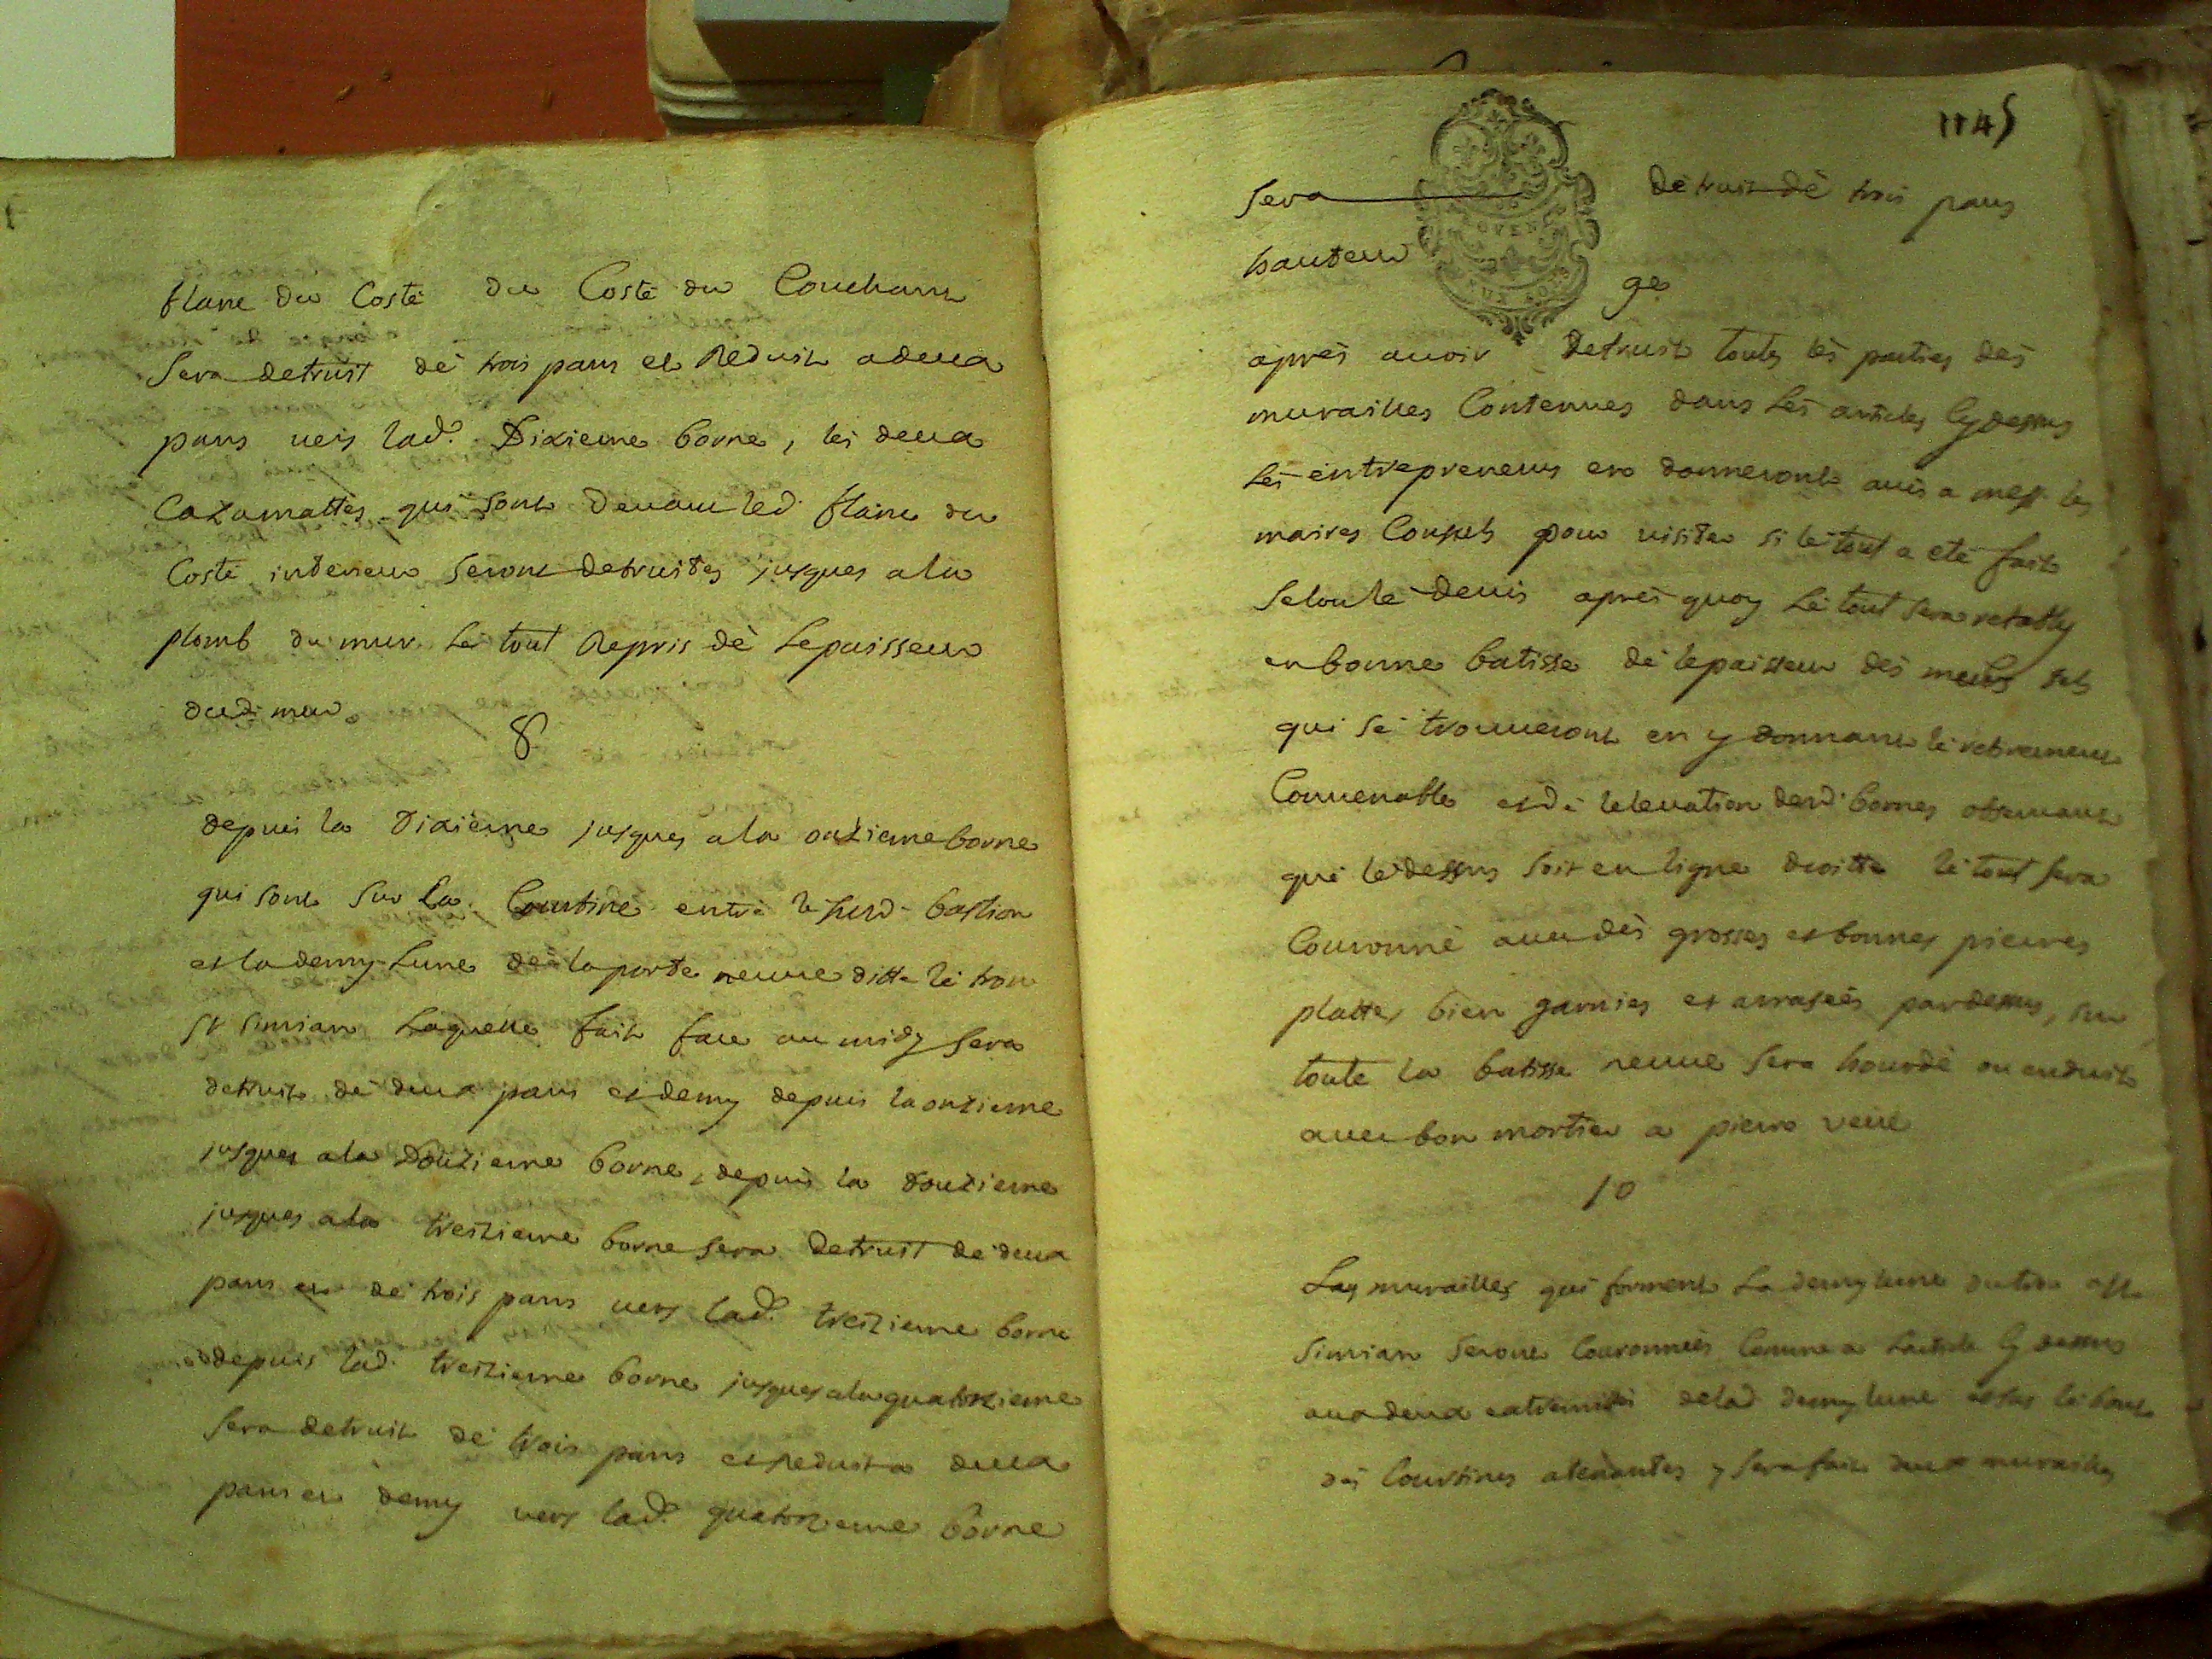 flanc du Costé du Costé du Couchant
Sera detruit de trois pans et Reduit a deux
pans vers lad.e Dixieme borne, les deux
Cazamattes qui sont devant led. flanc du
Costé interieur Seront detruites jusques a la
plomb du mur le tout Repris de Lepaisseur
dud. mur.
8
depuis la Dixieme jusques a la onzieme borne
qui sont Sur la Courtine entre le susd. bastion
et la demy Lune de la porte neuve ditte le trou
St simian Laquelle fait face au midy Sera
detruit de deux pans et demy depuis la onzieme
jusques a la Douzieme borne, depuis la Douzieme
jusques a la treizieme borne Sera Detruit de deux
pans et de trois pans vers lad.e treizieme borne
depuis lad. treizieme borne jusques a la quatorzieme
Sera detruit de trois pans et reduit a deux
pans et demy vers lad.e quatorzieme borne
1145
Sera detruit de trois pans
hauteur
9e
aprés avoir Detruit toutes les parties des
murailles Contenues dans Les articles Cy dessus
Les entrepreneurs en donneront avis a mess. les
maires Consuls pour visiter si le tout a eté fait
Selon le devis aprés quoy Le tout sera retably
en bonne batisse de lepaisseur des murs
qui se trouveront en y donnant le
Convenable et de lelevation desd. bornes observant
que le dessus soit en ligne droitte le tout sera
Couronné avec des grosses et bonnes pierres
plattes bien garnies et arrasées par dessus, sur
toute la batisse neuve Sera hourdé ou enduit
avec bon mortier a pierre veue
10
Les murailles qui forment La demy lune du trou
Simian Seront Couronnées Comme a Larticle Cy dessus
aux deux extremités de lad. demy lune et sur le bout
des Courtines atenantes y sera fait deux murailles